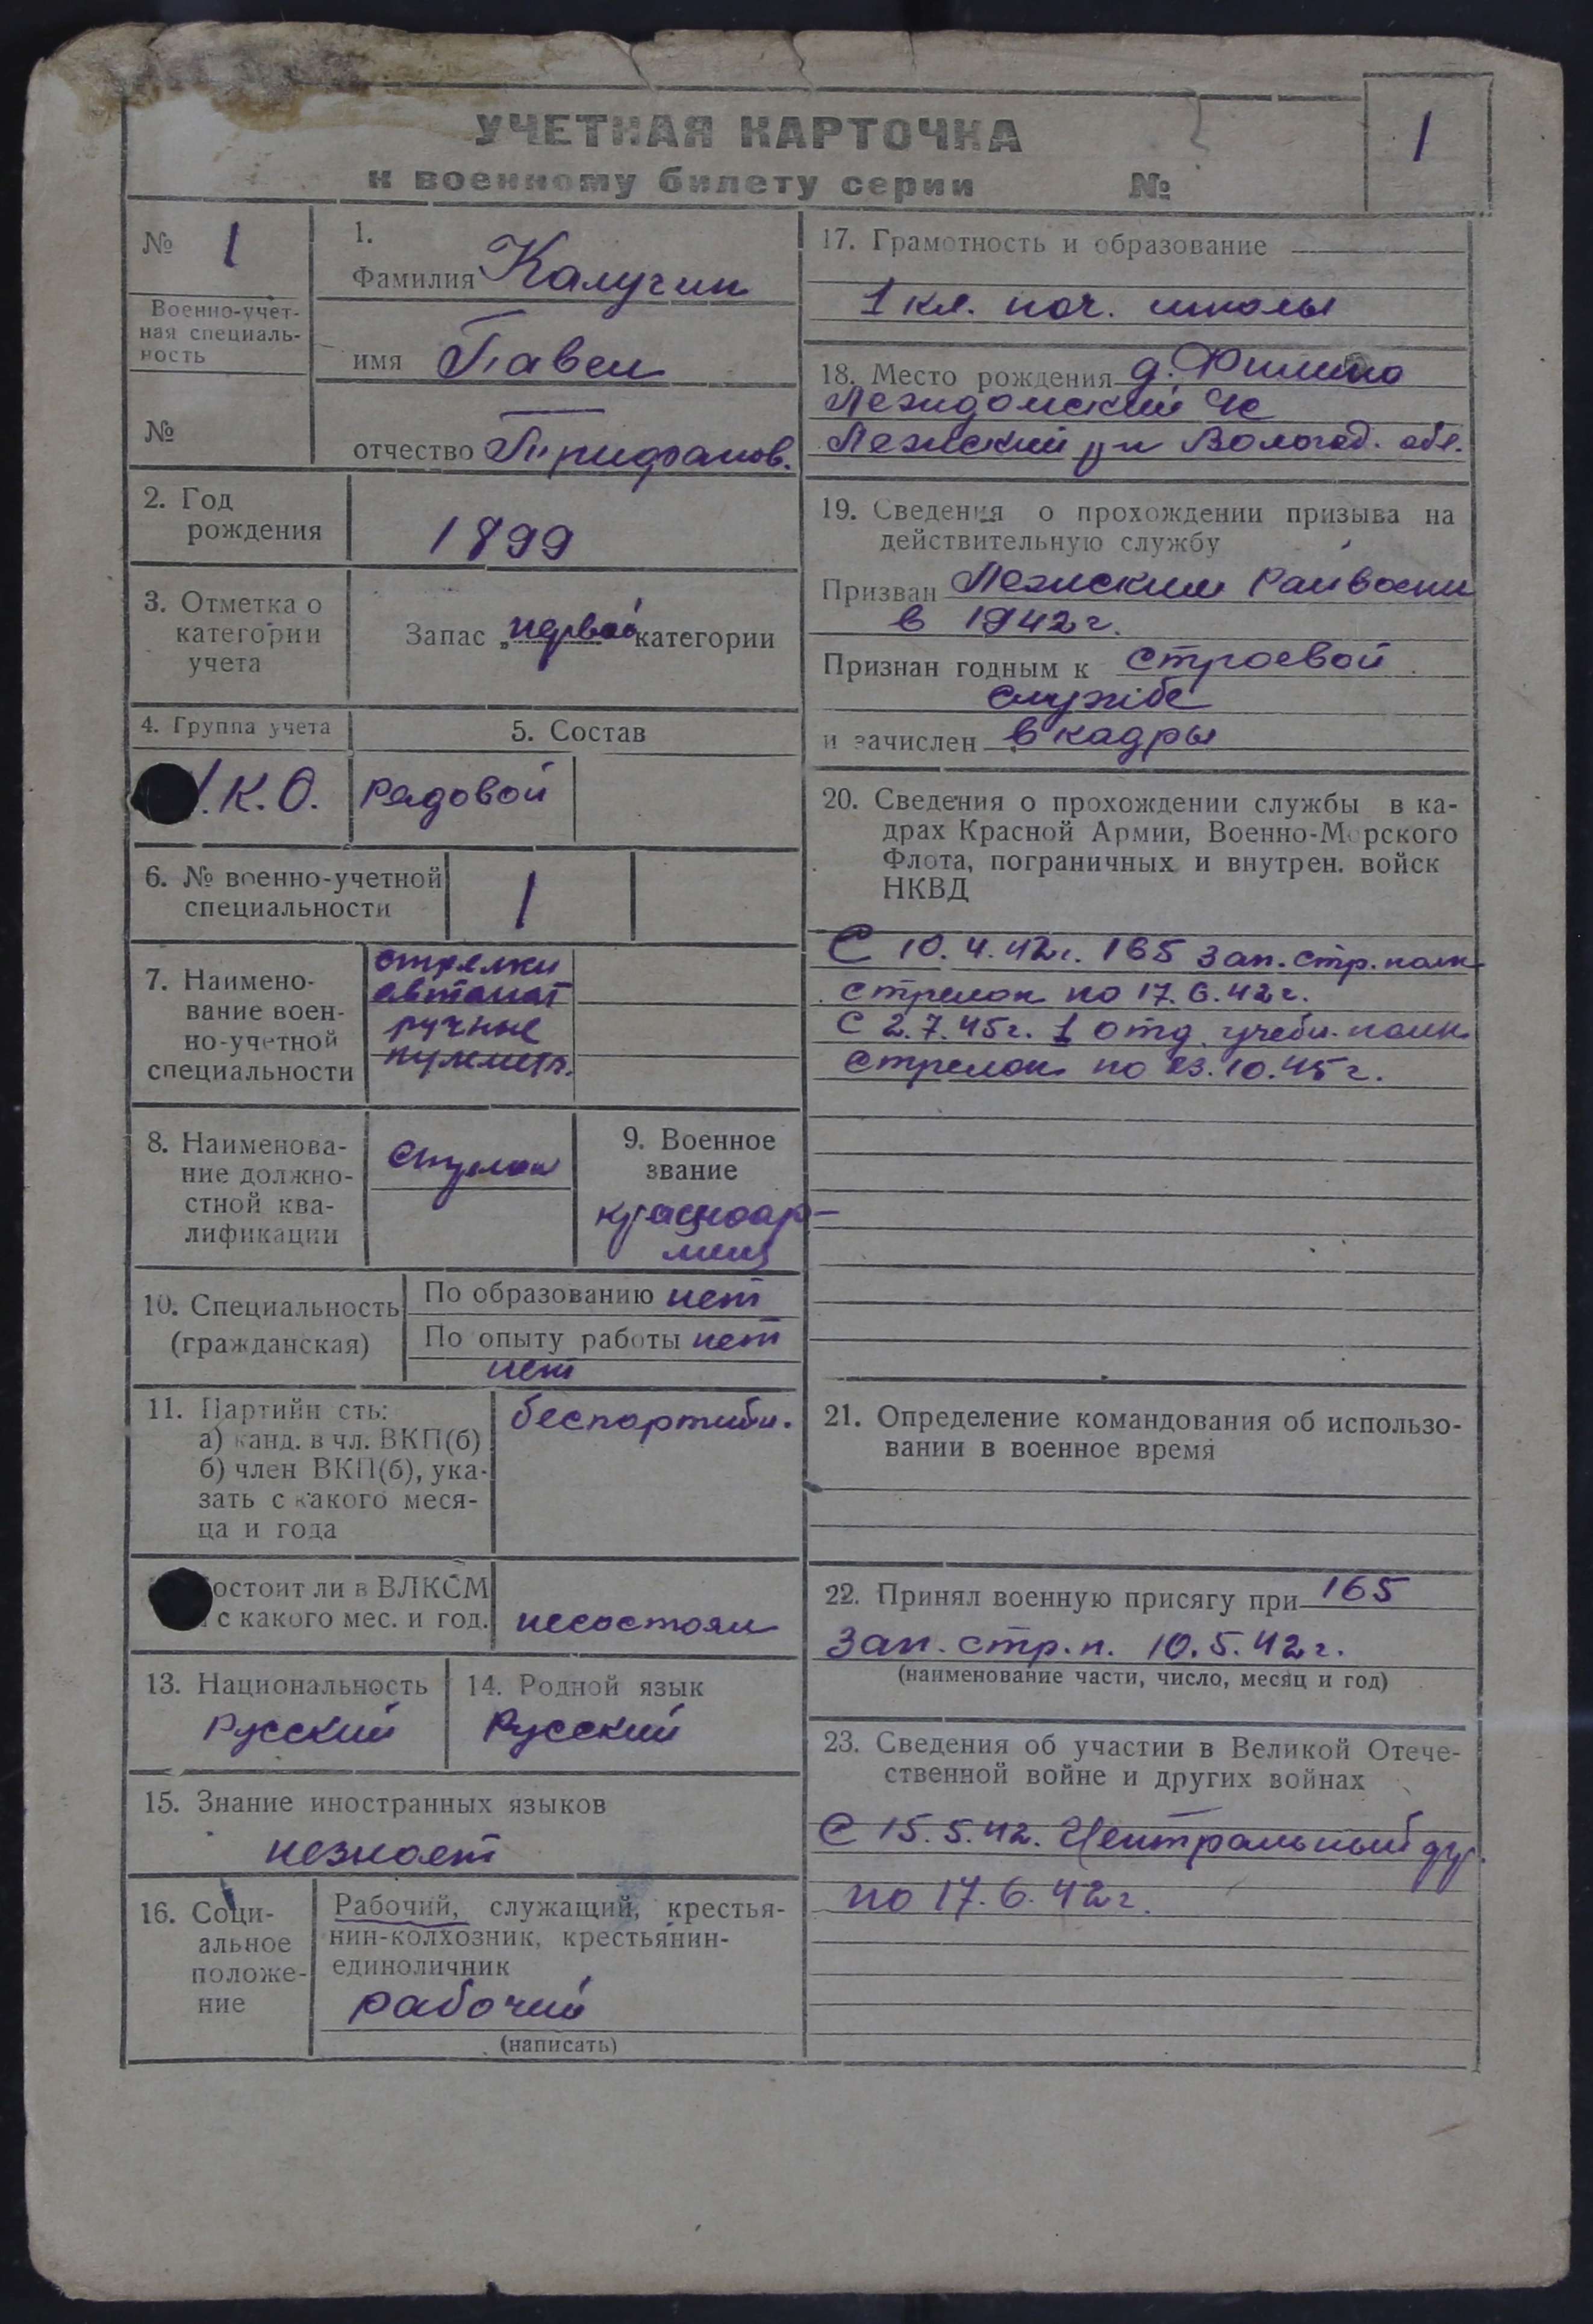 УЧЕТНАЯ КАРТОЧКА
к военному билету серии №
1
№ 1
Военно-учет-
ная специаль-
ность
№
1.
Фамилия Калугин
имя Павел
отчество
2. Год
рождения
1899
3. Отметка о
категории
учета
Запас „первой" категории
4. Группа учета
5. Состав
К.О.
Рядовой
6. № военно-учетной
специальности
1
7. Наимено-
вание воен-
но-учетной
специальности
стрелки
автомат
ручные
пулеметы.
8. Наименова-
ние должно-
стной ква-
лификации
Стрелок
9. Военное
звание
красноар-
меец
10. Специальность
(гражданская)
По образованию нет
По опыту работы нет
нет
11. Партийн сть:
а) канд. в чл. ВКП(б)
б) член ВКП(б), ука-
зать с какого меся-
ца и года
беспартийн.
остоит ли в ВЛКСМ
с какого мес. и год.
несостоял
13. Национальность
Русский
14. Родной язык
Русский
15. Знание иностранных языков
незнает
16. Соци-
альное
положе-
ние
Рабочий, служащий, крестья-
нин-колхозник, крестьянин-
единоличник
рабочий
(написать)
17. Грамотность и образование
1 кл. нач. школы
18. Место рождения д. Филино
Лежский р-н Вологод. обл.
19. Сведения о прохождении призыва на
действительную службу
Призван Лежским Райвоенк
в 1942 г.
Признан годным к строевой
службе
и зачислен в кадры
20. Сведения о прохождении службы в ка-
драх Красной Армии, Военно-Морского
Флота, пограничных и внутрен. войск
НКВД
С 10.4.42г. 165 зап. стр. полк
стрелок по 17.6.42г.
С 2.7.45г. 1 отд. учебн. полк
стрелок по 23.10.45г.
21. Определение командования об использо-
вании в военное время
22. Принял военную присягу при 165
Зап. стр. п. 10.5.42г.
(наименование части, число, месяц и год)
23. Сведения об участии в Великой Отече-
ственной войне и других войнах
С 15.5.42. Центральный фр.
по 17.6.42г.